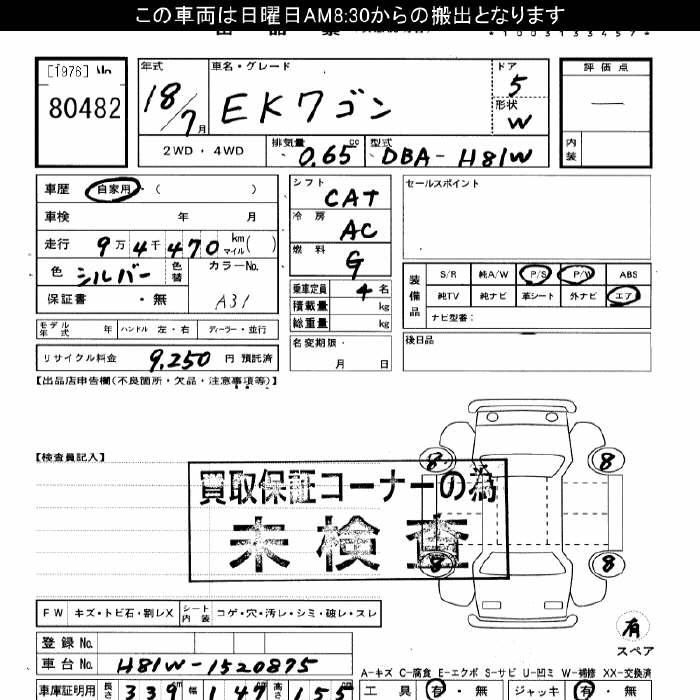 この車両は日曜日AM8:30からの搬出となります
*1003133457*
[1976] No
80482
年式
18/7月
車名・グレード
EKワゴン
ドア
5
形状
W
評価点
—
内装
2WD・4WD
排気量
0.65 cc
型式
DBA-H81W
車歴 自家用 ( )
車検 年 月
走行 9万4千470 km マイル ( )
色 シルバー 色替
カラーNo.
A31
保証書 ・無
シフト CAT
冷房 AC
燃料 G
乗車定員 4名
積載量 kg
総重量 kg
セールスポイント
装備品
S/R 純A/W P/S P/W ABS
純TV 純ナビ 革シート 外ナビ エア
ナビ型番:
モデル年式 年 ハンドル 左・右 ディーラー・並行
リサイクル料金 9,250 円 預託済
名変期限・
月 日
後日品
【出品店申告欄(不良箇所・欠品・注意事項等)】
【検査員記入】
買取保証コーナーの為
未検査
8 8
8 8
有
スペア
FW キズ・トビ石・割レX シート内装 コゲ・穴・汚レ・シミ・破レ・スレ
登録No.
車台No. H81W-1520875
A-キズ C-腐食 E-エクボ S-サビ U-凹ミ W-補修 XX-交換済
車庫証明用 長さ 339 幅 147 高さ 155
工具 有・無 ジャッキ 有・無